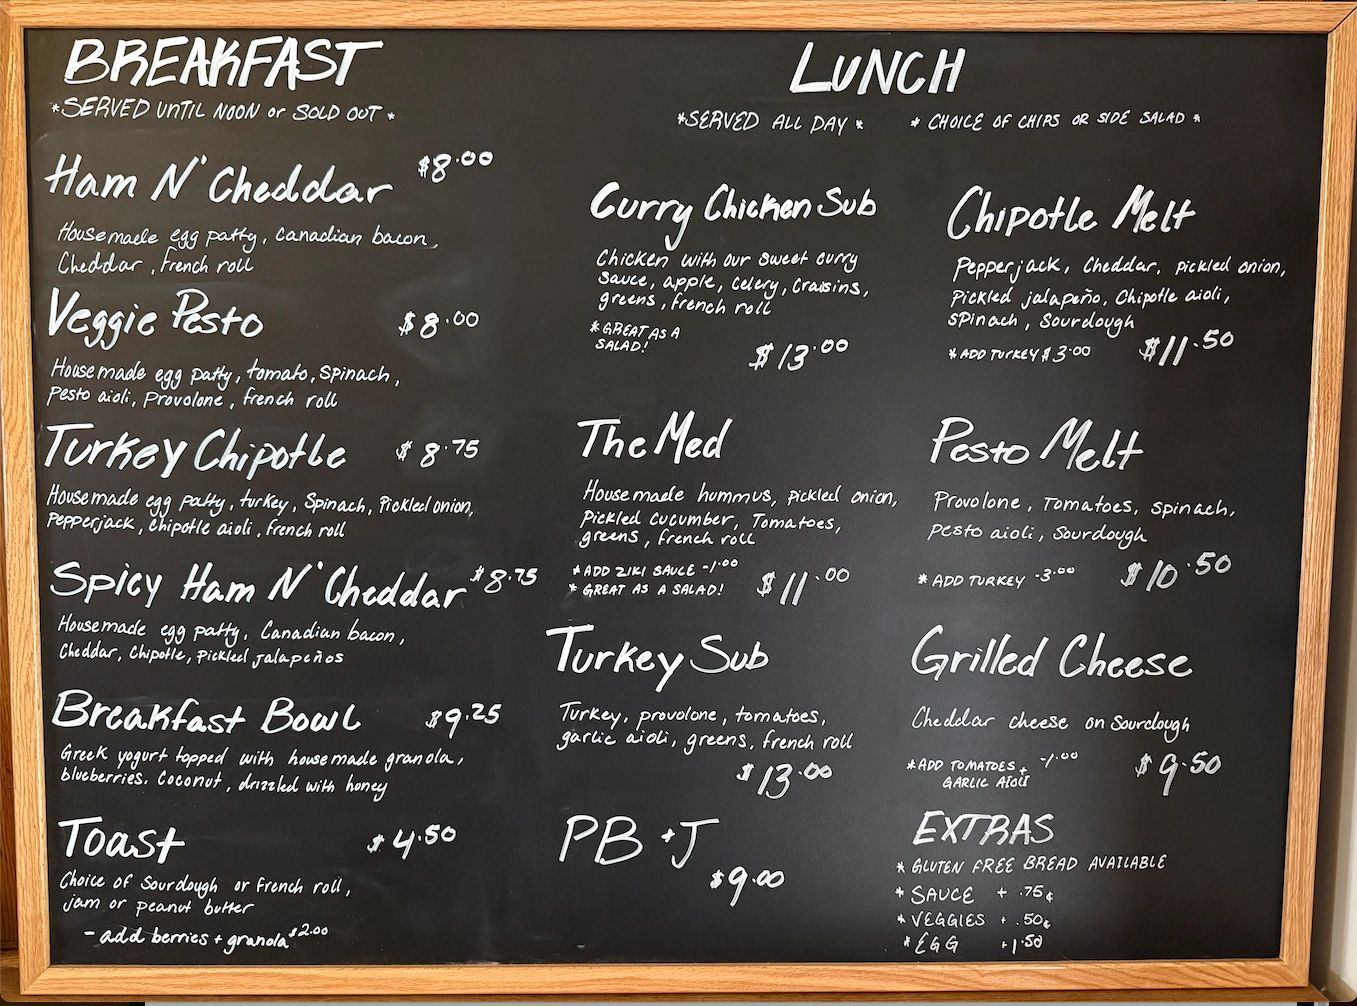 BREAKFAST
*SERVED UNTIL NOON or SOLD OUT*
Ham N' Cheddar $8.00
Housemade egg patty, Canadian bacon,
Cheddar, french roll
Veggie Pesto $8.00
Housemade egg patty, tomato, spinach,
pesto aioli, Provolone, french roll
Turkey Chipotle $8.75
Housemade egg patty, turkey, Spinach, Pickled onion,
pepperjack, chipotle aioli, french roll
Spicy Ham N' Cheddar $8.75
Housemade egg patty, Canadian bacon,
Cheddar, Chipotle, pickled jalapeños
Breakfast Bowl $9.25
Greek yogurt topped with housemade granola,
blueberries, Coconut, drizzled with honey
Toast $4.50
Choice of Sourdough or french roll,
jam or peanut butter
- add berries + granola $2.00
LUNCH
*SERVED ALL DAY* *CHOICE OF CHIPS OR SIDE SALAD*
Curry Chicken Sub
Chicken with our sweet curry
sauce, apple, celery, craisins,
greens, french roll
*GREAT AS A
SALAD!
$13.00
The Med
Housemade hummus, pickled onion,
Pickled cucumber, Tomatoes,
greens, french roll
*ADD ZIKI SAUCE -1.00
*GREAT AS A SALAD! $11.00
Turkey Sub
Turkey, provolone, tomatoes,
garlic aioli, greens, french roll
$13.00
PB + J
$9.00
Chipotle Melt
Pepperjack, Cheddar, pickled onion,
Pickled jalapeño, Chipotle aioli,
spinach, Sourdough
*ADD TURKEY $3.00 $11.50
Pesto Melt
Provolone, Tomatoes, spinach,
pesto aioli, Sourdough
*ADD TURKEY -3.00 $10.50
Grilled Cheese
Cheddar cheese on Sourdough
*ADD TOMATOES + -1.00
GARLIC AIOLI
$9.50
EXTRAS
*GLUTEN FREE BREAD AVAILABLE
*SAUCE + .75¢
*VEGGIES + .50¢
*EGG +1.50